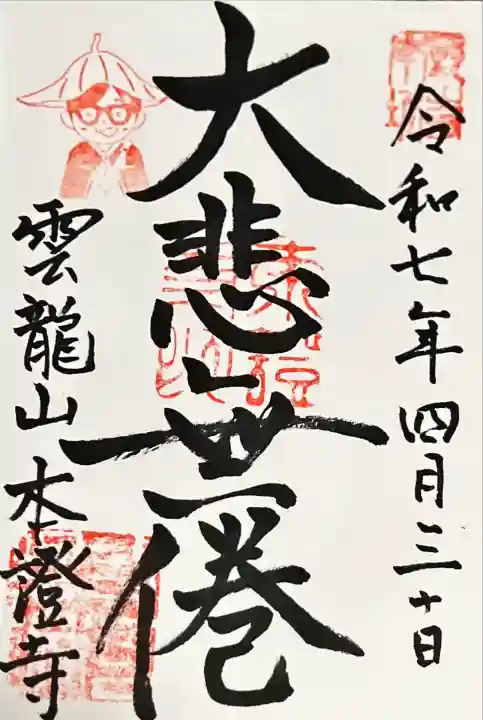 令和七年四月三十日
大悲無倦
雲龍山本澄寺